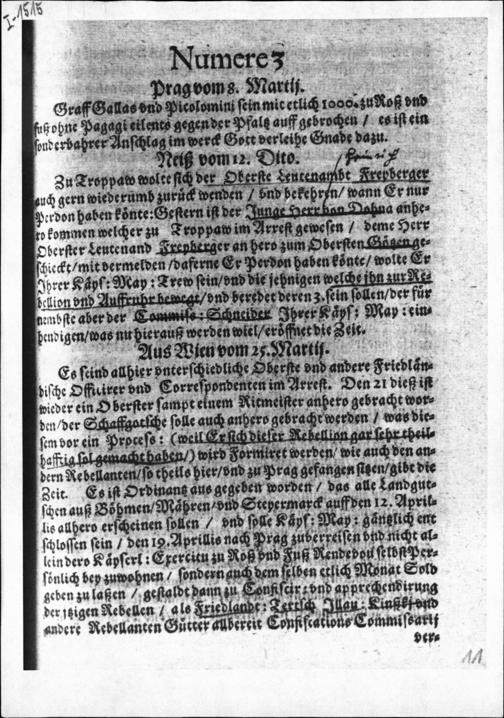 I-1515
Numere 3
Prag vom 8. Martij.
Graff Gallas vnd Picolomini sein mit etlich 1000. zu Roß vnd
fuß ohne Pagagi eilents gegen der Pfaltz auff gebrochen / es ist ein
sonderbahrer Anschlag im werck Gott verleihe Gnade dazu.
Neiß vom 12. Dito.
Heinrich
Zu Troppaw wolte sich der Oberste Leutenambt Freyberger
auch gern wiederumb zurück wenden / vnd bekehren / wann Er nur
Perdon haben könte: Gestern ist der Junge Herr von Dohna anhe-
ro kommen welcher zu Troppaw im Arrest gewesen / deme Herr
Oberster Leutenand Freyberger an hero zum Obersten Götzen ge-
schickt / mit vermelden / daferne Er Perdon haben könte / wolte Er
Ihrer Käys: May: Trew sein / vnd die jehnigen welche ihn zur Re-
bellion vnd Auffruhr bewegt / vnd beredet deren 3. sein sollen / der für
nembste aber der Commiss: Schneider Ihrer Käys: May: ein-
hendigen / was nu hierauß werden wiel / eröffnet die Zeit.
Aus Wien vom 25. Martij.
Es seind allhier vnterschiedliche Oberste vnd andere Friedlän-
dische Officirer vnd Correspondenten im Arrest. Den 21 dieß ist
wieder ein Oberster sampt einem Ritmeister anhero gebracht wor-
den / der Schaffgotsche solle auch anhero gebracht werden / was die-
sem vor ein Process: (weil Er sich dieser Rebellion gar sehr theil-
hafftig sol gemacht haben /) wird Formiret werden / wie auch den an-
dern Rebellanten / so theils hier / vnd zu Prag gefangen sitzen / gibt die
Zeit. Es ist Ordinantz aus gegeben worden / das alle Landgut-
schen auß Böhmen / Mähren / vnd Steyermarck auff den 12. April-
lis allhero erscheinen sollen / vnd solle Käys: May: gäntzlich ent
schlossen sein / den 19. Aprillis nach Prag zuberreisen vnd nicht al-
lein dero Käyserl: Exercitu zu Roß vnd Fuß Rendevou selbst Per-
sönlich bey zuwohnen / sondern auch dem selben etlich Monat Sold
geben zu laßen / gestalt dann zu Confiscir: vnd apprechendirung
der jtzigen Rebellen / als Friedlandt: Tertsch Illau: Kinsky vnd
andere Rebellanten Gütter allbereit Confiscations Commissarij
ver-
11